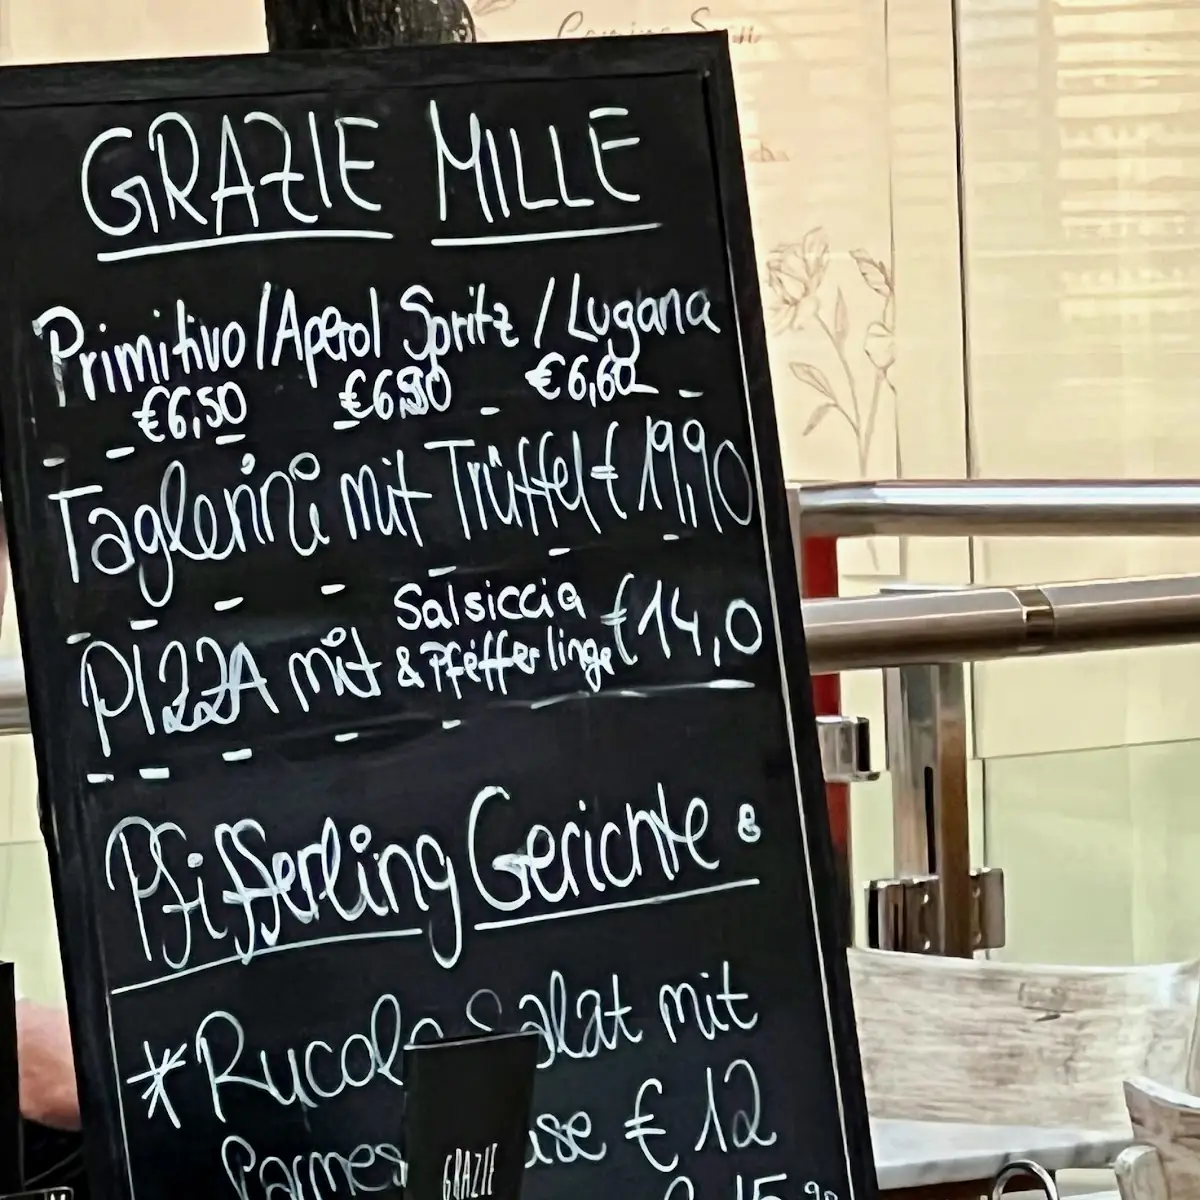 GRAZIE MILLE
Primitivo/Aperol Spritz / Lugana
€6,50 €6,90 €6,60
Taglerini mit Trüffel € 19,90
PIZZA mit Salsiccia & Pfifferlinge € 14,0
Pfifferling Gerichte
* Rucola Salat mit
€ 12
GRAZIE